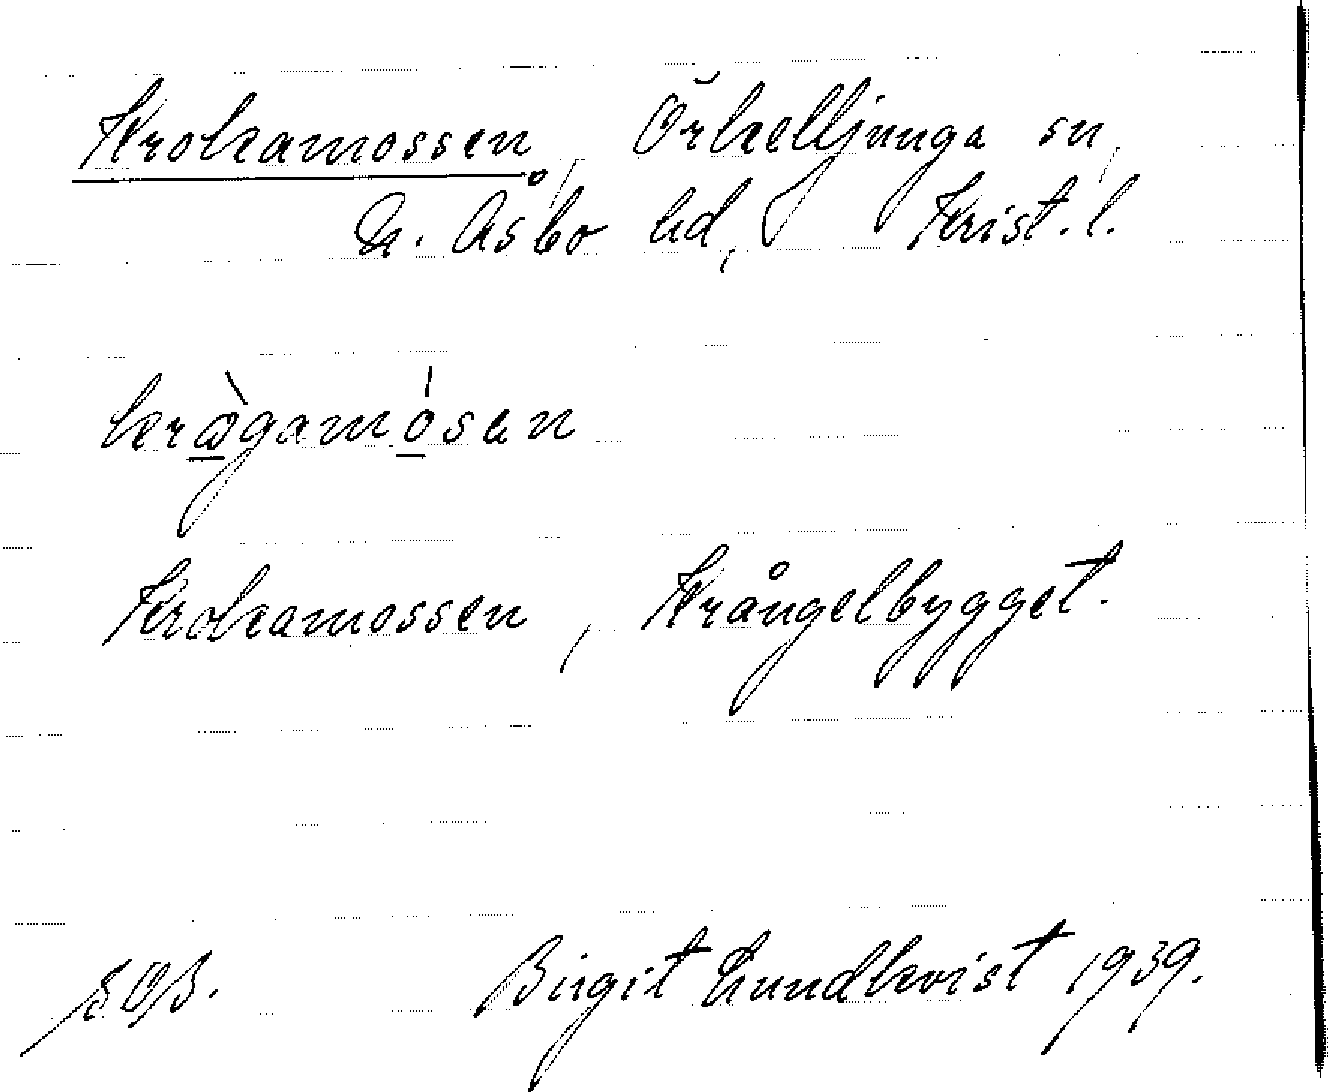 Krokamossen, Örkelljunga sn,
N. Åsbo hd, Krist. l.
krɷ̀gamósan
Krokamossen, Krångelbygget.
Birgit Lundkvist 1939.